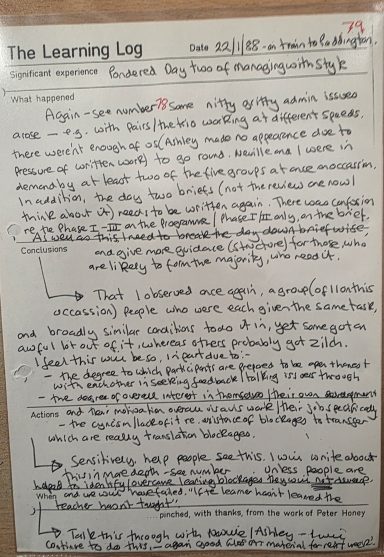 79
The Learning Log Date 22/1/88 - on train to Paddington.
Significant experience Pondered Day two of Managing with Style
What happened
Again - see number 78 some nitty gritty admin issues
arose - e.g. with pairs/the trio working at different speeds.
there weren't enough of us (Ashley made no appearance due to
pressure of written work) to go round. Neville and I were in
demand by at least two of the five groups at once on occasion.
In addition, the day two briefs (not the review one now I
think about it) needs to be written again. There was confusion
re the Phase I-III on the Programme / Phase I/II only, on the brief.
As well as this I need to break the day down brief wise,
and give more guidance (structure) for those, who
are likely to form the majority, who need it.
Conclusions
That I observed once again, a group (of 11 on this
occassion) people who were each given the same task,
and broadly similar conditions to do it in, yet some got an
awful lot out of it, whereas others probably got zilch.
I feel this will be so, in part due to:-
- the degree to which participants are prepared to be open/honest
with each other in seeking feedback/talking issues through
- the degree of overall interest in themselves/their own development
and their motivation overall vis a vis work/their job specifically
- the cynicism/lack of it re. existence of blockages to transfer
which are really translation blockages.
Actions
Sensitively, help people see this. I will write about
this in more depth - see number . Unless people are
helped to identify/overcome learning blockages they will not
and we will have failed. "If the learner hasn't learned the
teacher hasn't taught",
pinched, with thanks, from the work of Peter Honey
When
Talk this through with Neville/Ashley - I will
continue to do this, - again good material for next week.